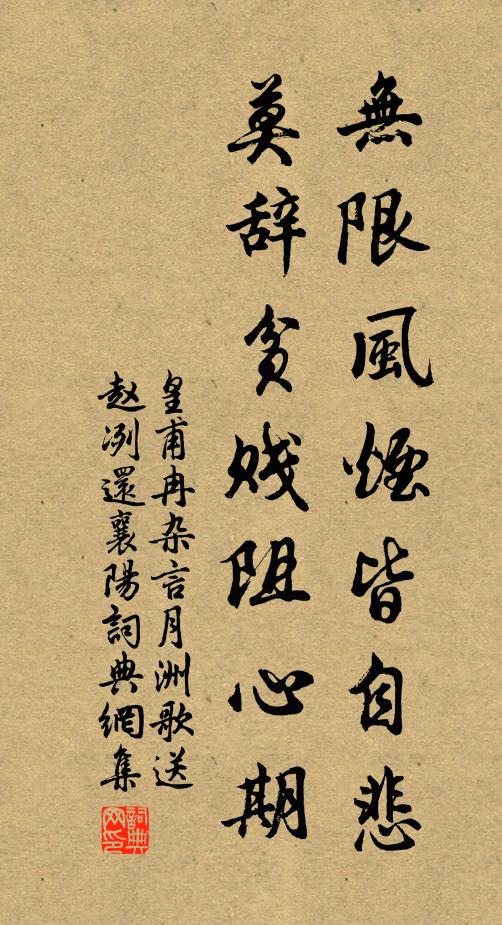 無限風煙皆自悲
莫辞貧賎阻心期
皇甫冉杂言月洲歌送
赵冽還襄陽詞典網集